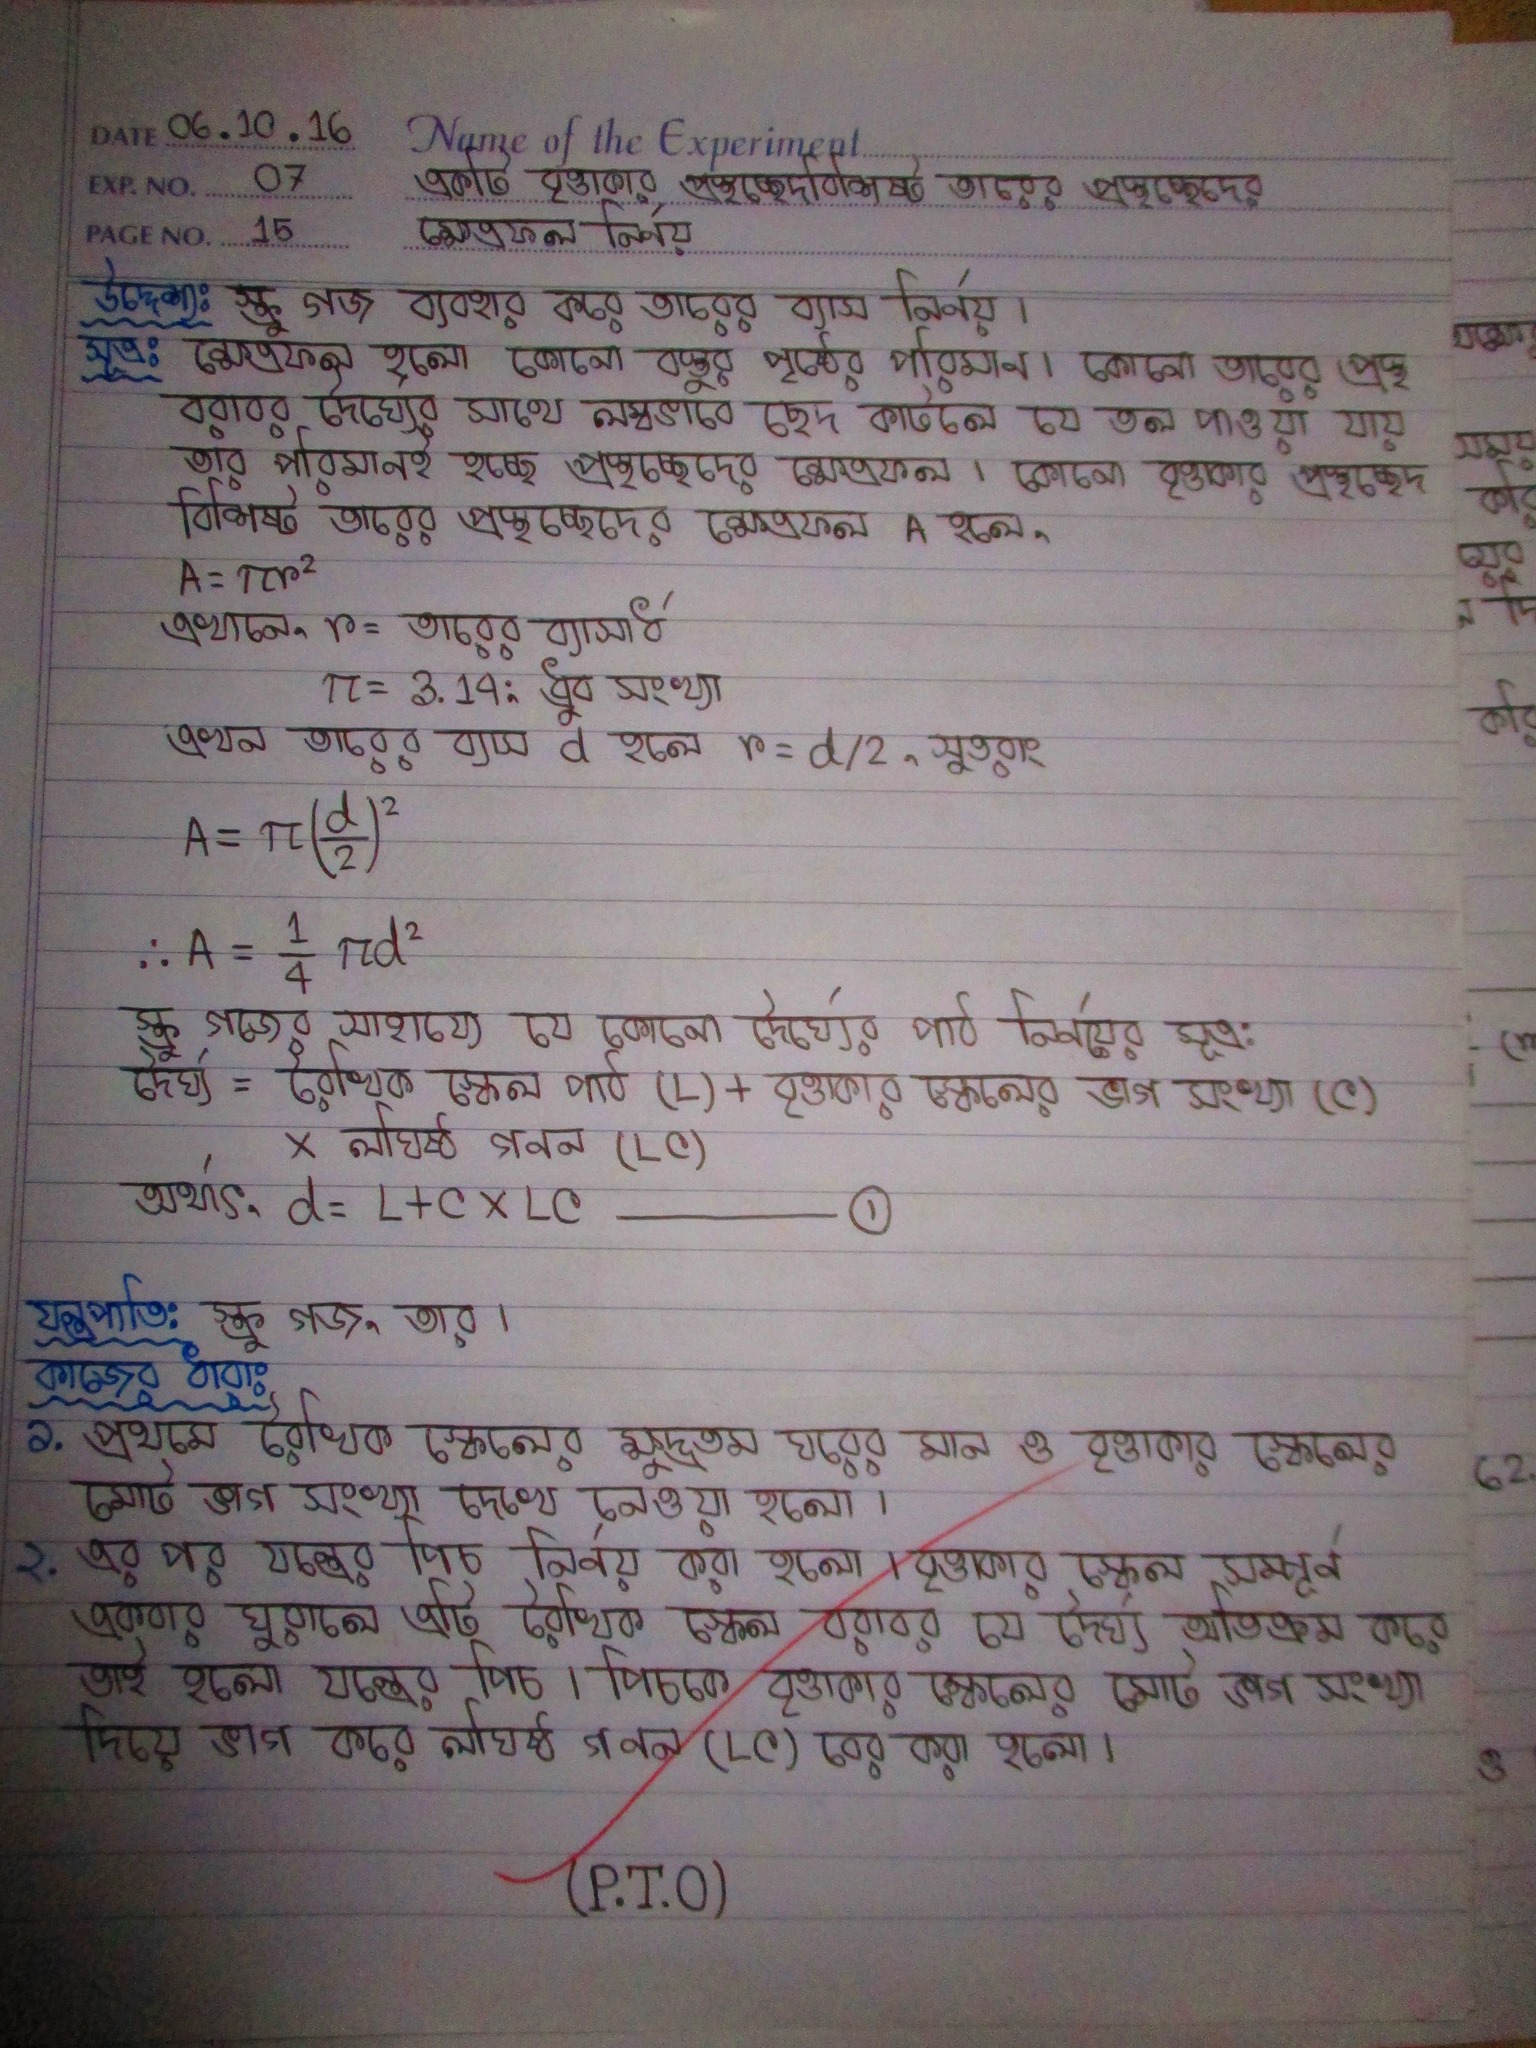 DATE 06.10.16 Name of the Experiment
EXP. NO. 07 একটি বৃত্তাকার প্রস্থচ্ছেদবিশিষ্ট তারের প্রস্থচ্ছেদের
PAGE NO. 15 ক্ষেত্রফল নির্ণয়
উদ্দেশ্যঃ স্ক্রু গজ ব্যবহার করে তারের ব্যাস নির্ণয়।
সূত্রঃ ক্ষেত্রফল হলো কোনো বস্তুর পৃষ্ঠের পরিমান। কোনো তারের প্রস্থ
বরাবর দৈর্ঘ্যের সাথে লম্বভাবে ছেদ কাটলে যে তল পাওয়া যায়
তার পরিমানই হচ্ছে প্রস্থচ্ছেদের ক্ষেত্রফল। কোনো বৃত্তাকার প্রস্থচ্ছেদ
বিশিষ্ট তারের প্রস্থচ্ছেদের ক্ষেত্রফল A হলে,
A = πr²
এখানে, r = তারের ব্যাসার্ধ
π = 3.14; ধ্রুব সংখ্যা
এখন তারের ব্যাস d হলে r = d/2, সুতরাং
A = π(d/2)²
∴ A = 1/4 πd²
স্ক্রু গজের সাহায্যে যে কোনো দৈর্ঘ্যের পাঠ নির্ণয়ের সূত্র:
দৈর্ঘ্য = রৈখিক স্কেল পাঠ (L) + বৃত্তাকার স্কেলের ভাগ সংখ্যা (C)
× লঘিষ্ঠ গনন (LC)
অর্থাৎ, d = L + C × LC ①
যন্ত্রপাতিঃ স্ক্রু গজ, তার।
কাজের ধারাঃ
১. প্রথমে রৈখিক স্কেলের ক্ষুদ্রতম ঘরের মান ও বৃত্তাকার স্কেলের
মোট ভাগ সংখ্যা দেখে নেওয়া হলো।
২. এর পর যন্ত্রের পিচ নির্ণয় করা হলো। বৃত্তাকার স্কেল সম্পূর্ন
একবার ঘুরালে এটি রৈখিক স্কেল বরাবর যে দৈর্ঘ্য অতিক্রম করে
তাই হলো যন্ত্রের পিচ। পিচকে বৃত্তাকার স্কেলের মোট ভাগ সংখ্যা
দিয়ে ভাগ করে লঘিষ্ঠ গনন (LC) বের করা হলো।
(P.T.O)